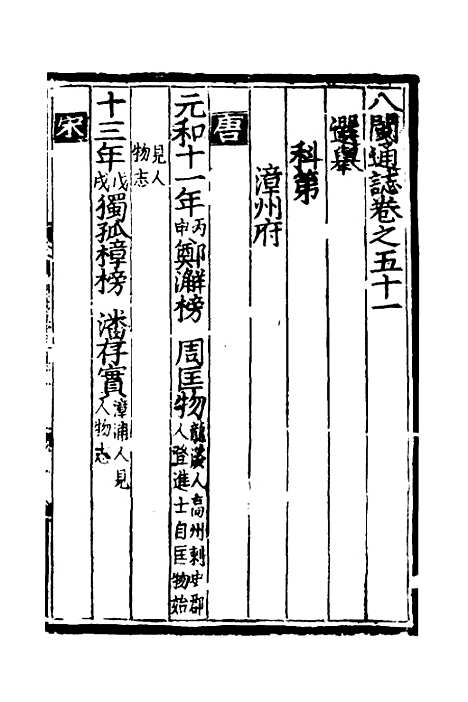 八閩通誌卷之五十一
選舉
科第
漳州府
唐
元和十一年丙申鄭澥榜 周匡物龍溪人高州刺史郡人登進士自匡物始
見人物志
十三年戊戌獨孤樟榜 潘存實漳浦人見人物志
宋